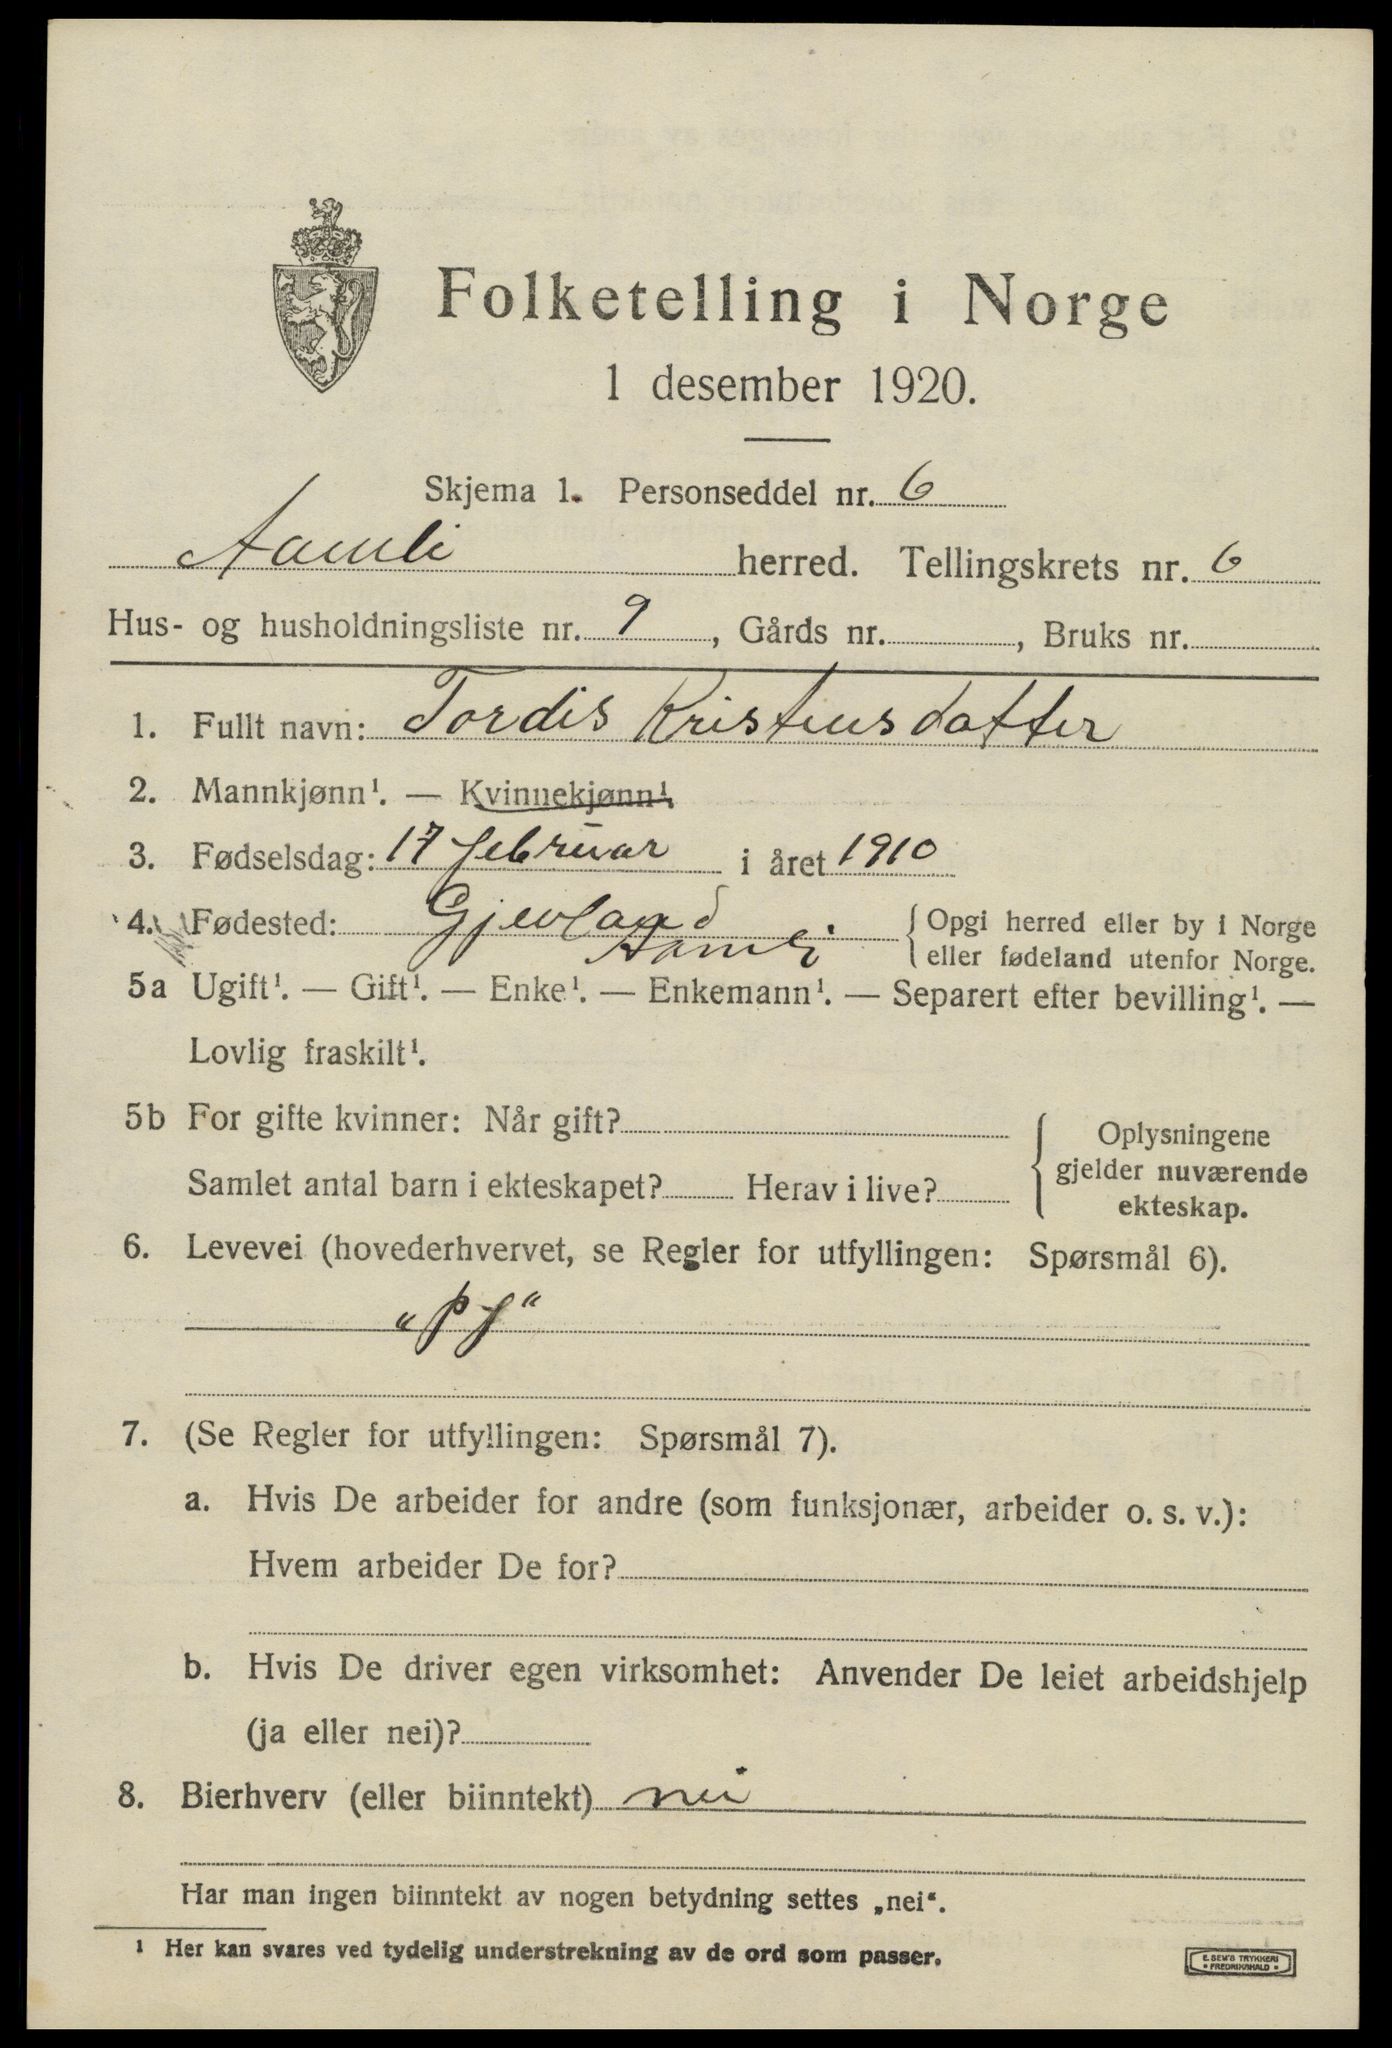 Folketelling i Norge
1 desember 1920.
Skjema 1. Personseddel nr. 6
Aamli herred. Tellingskrets nr. 6
Hus- og husholdningsliste nr. 9, Gårds nr. , Bruks nr.
1. Fullt navn: Tordis Kristensdatter
2. Mannkjønn¹. — Kvinnekjønn¹.
3. Fødselsdag: 17 februar i året 1910
4. Fødested: Gjevland { Opgi herred eller by i Norge
Aamli eller fødeland utenfor Norge.
5a Ugift¹. — Gift¹. — Enke¹. — Enkemann¹. — Separert efter bevilling¹. —
Lovlig fraskilt¹.
5b For gifte kvinner: Når gift? { Oplysningene
gjelder nuværende
Samlet antal barn i ekteskapet? Herav i live? ekteskap.
6. Levevei (hovederhvervet, se Regler for utfyllingen: Spørsmål 6).
7. (Se Regler for utfyllingen: Spørsmål 7).
a. Hvis De arbeider for andre (som funksjonær, arbeider o. s. v.):
Hvem arbeider De for?
b. Hvis De driver egen virksomhet: Anvender De leiet arbeidshjelp
(ja eller nei)?
8. Bierhverv (eller biinntekt) nei
Har man ingen biinntekt av nogen betydning settes „nei“.
¹ Her kan svares ved tydelig understrekning av de ord som passer.
E. SEM'S TRYKKERI
• FREDRIKSHALD •